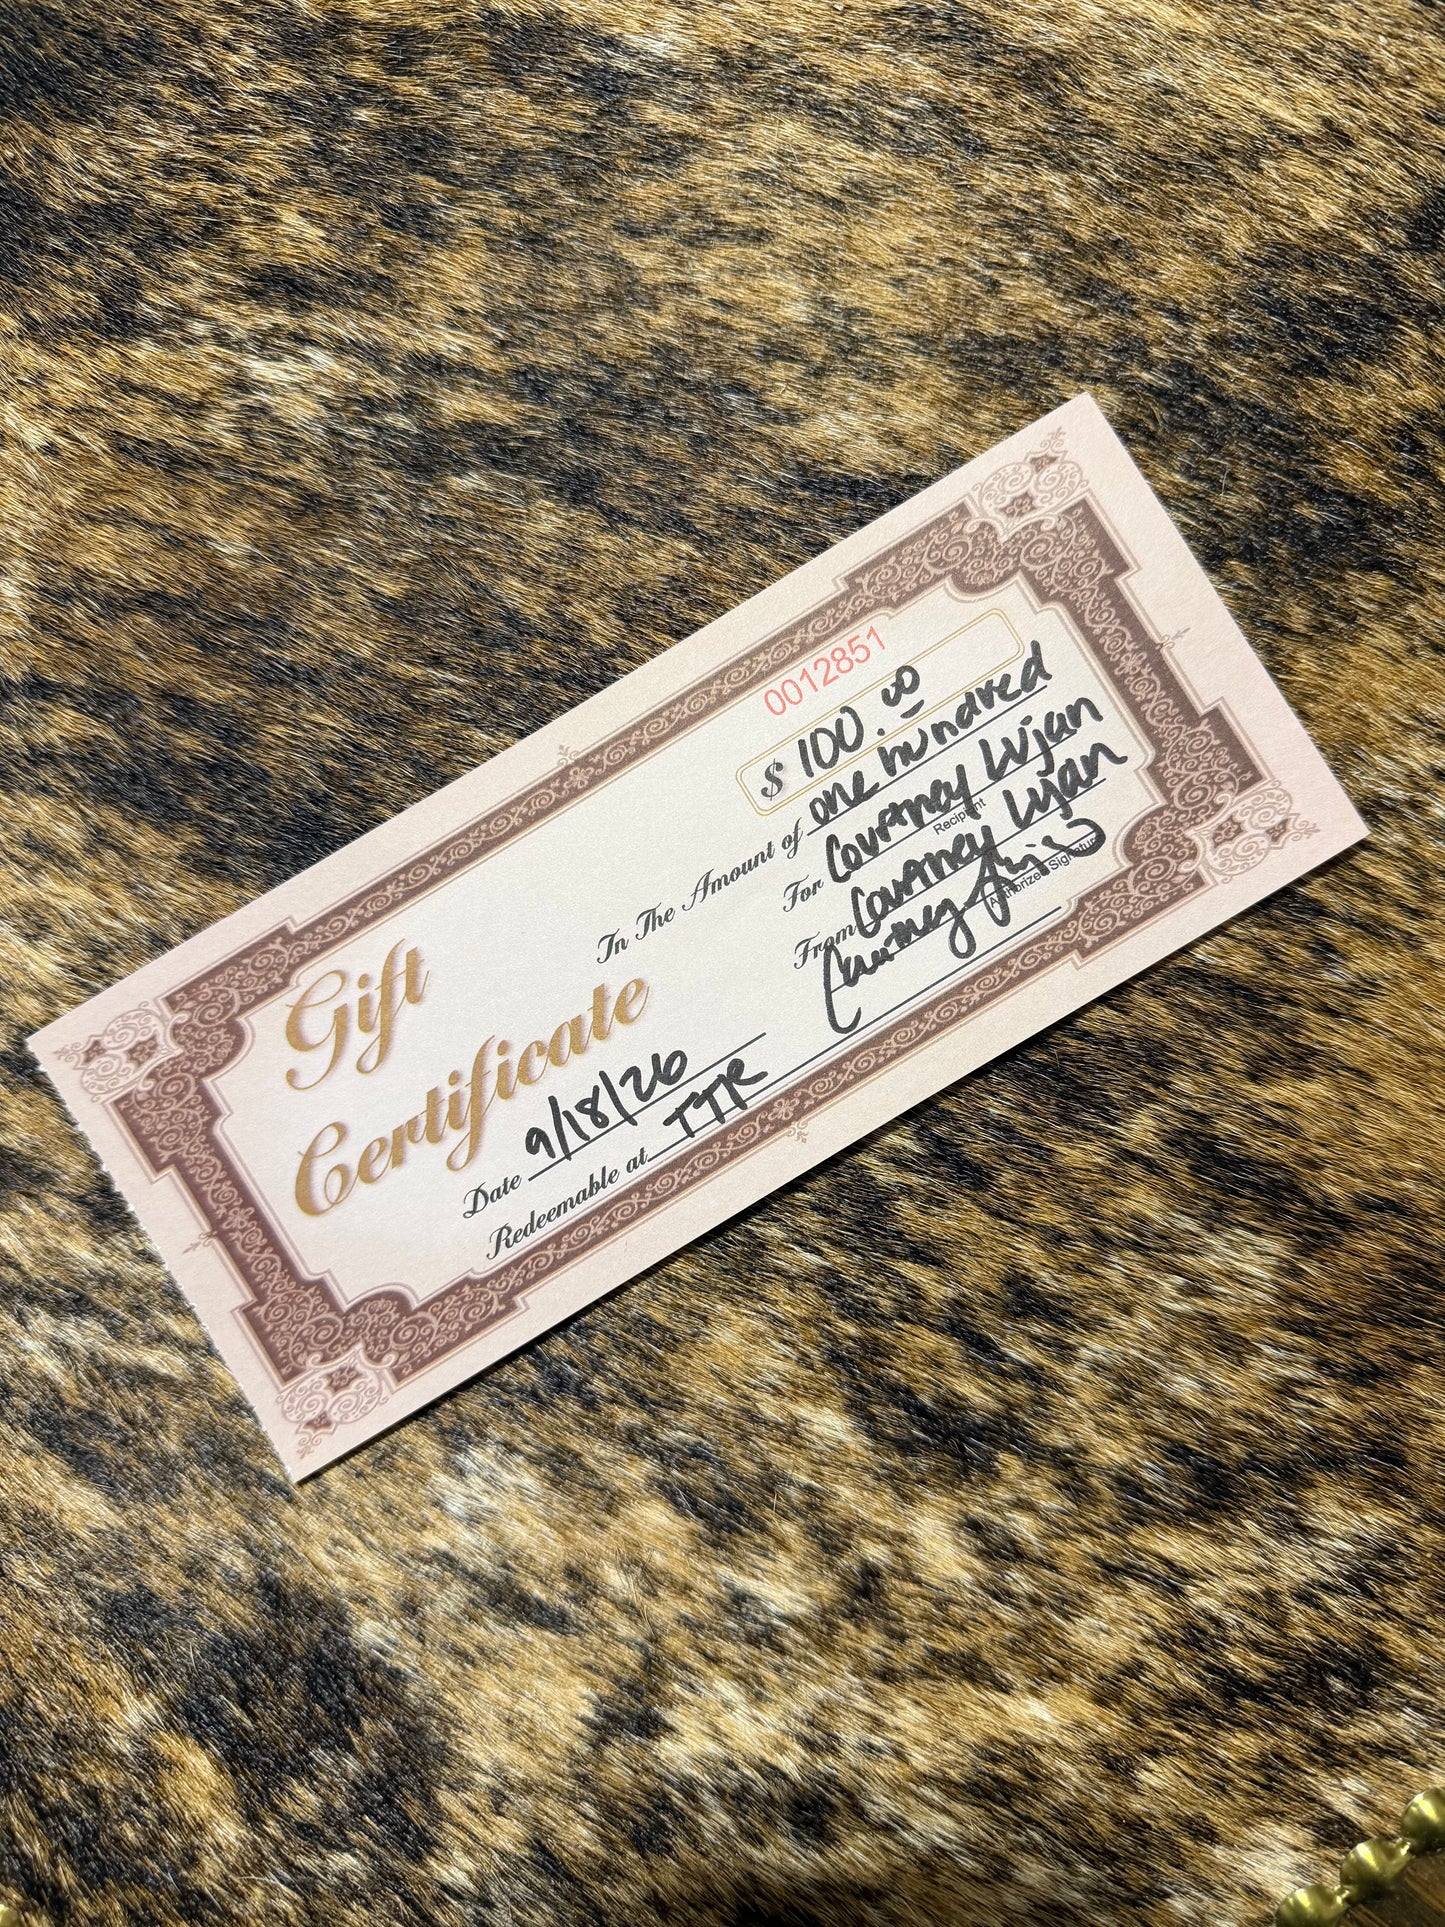 0012851
$ 100.00
In The Amount of one hundred
For Courtney Lujan
Recipient
From Courtney Lujan
Authorized Signature
Gift
Certificate
Date 9/18/26
Redeemable at TTR